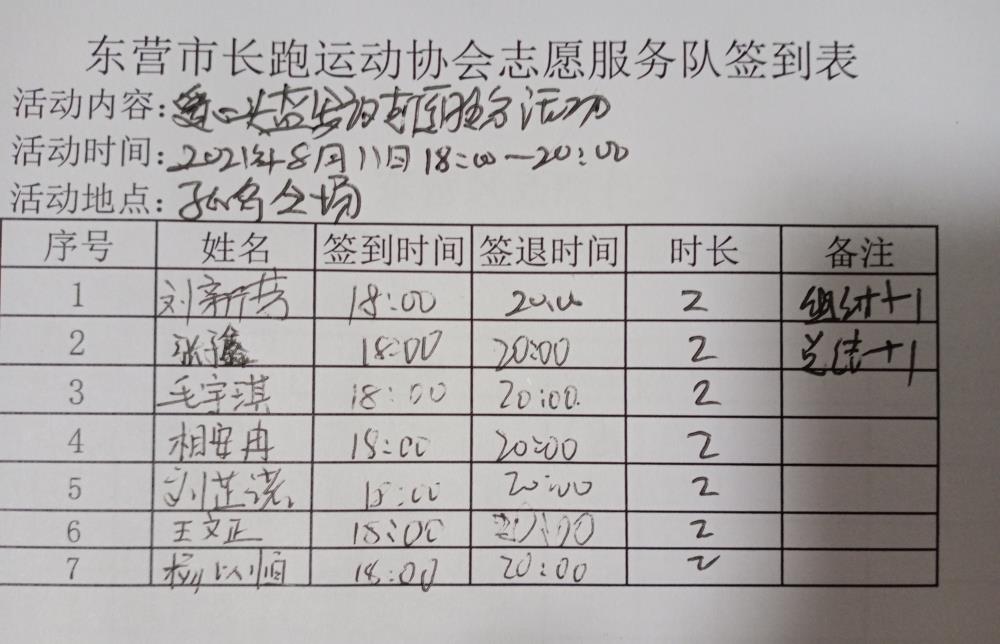 东营市长跑运动协会志愿服务队签到表
活动内容:爱心头盔发放志愿服务活动
活动时间:2021年8月11日18:00—20:00
活动地点:广场
序号 姓名 签到时间 签退时间 时长 备注
1 刘新芳 18:00 20:00 2 组织+1
2 张子鑫 18:00 20:00 2 总结+1
3 毛宇琪 18:00 20:00 2
4 相安冉 18:00 20:00 2
5 刘芷 18:00 20:00 2
6 王文正 18:00 20:00 2
7 杨以恒 18:00 20:00 2